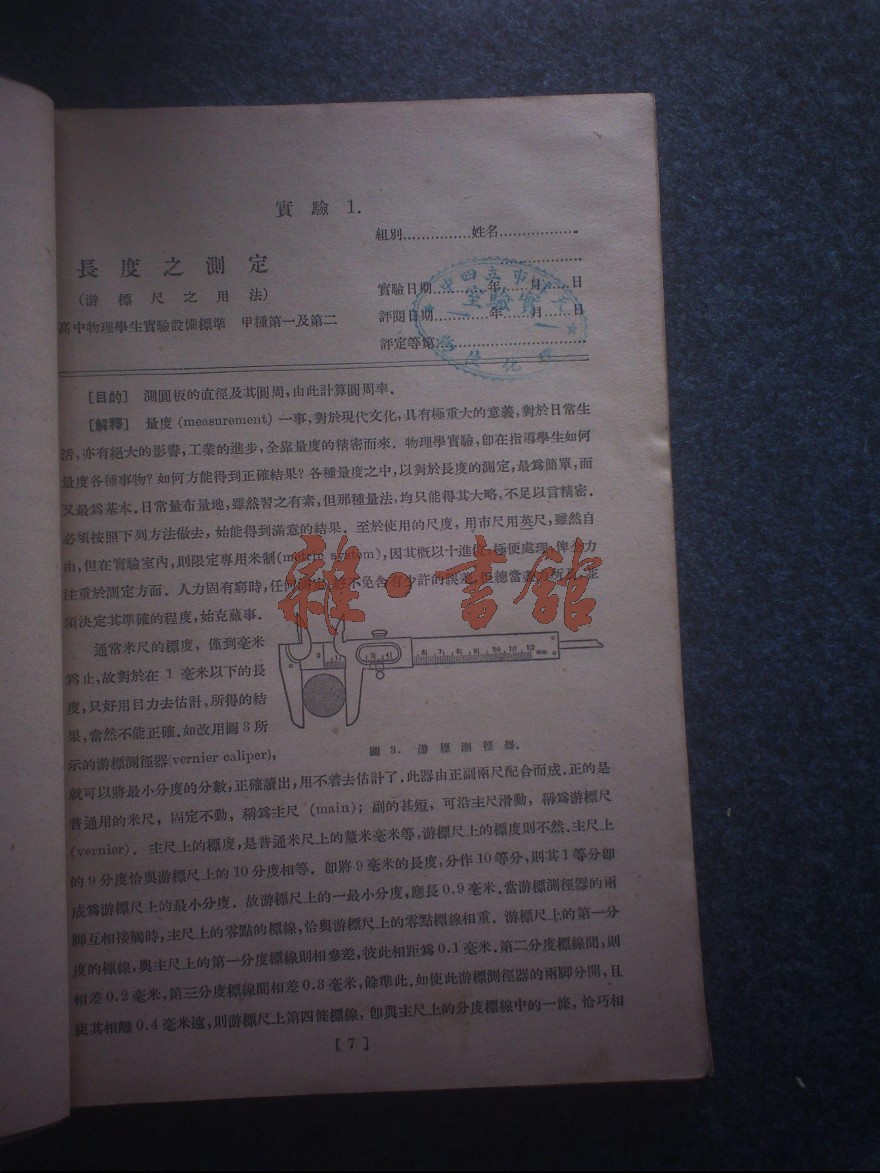 實驗 1.
組別...............姓名..................
長度之測定
(游標尺之用法)
實驗日期............年......月......日
高中物理學生實驗設備標準 甲種第一及第二
評閱日期............年......月......日
評定等第
市立四
實驗室
[目的] 測圓板的直徑及其圓周,由此計算圓周率.
[解釋] 量度 (measurement) 一事,對於現代文化,具有極重大的意義,對於日常生
活,亦有絕大的影響,工業的進步,全靠量度的精密而來. 物理學實驗,即在指導學生如何
量度各種事物?如何方能得到正確結果?各種量度之中,以對於長度的測定,最爲簡單,而
又最爲基木.日常量布量地,雖然習之有素,但那種量法,均只能得其大略,不足以言精密.
必須按照下列方法做去,始能得到滿意的結果. 至於使用的尺度,用市尺用英尺,雖然自
由,但在實驗室內,則限定專用米制(metric system),因其概以十進位,極便處理,俾全力
注重於測定方面. 人力固有窮時,任何測定,終不免含有少許的誤差,但總當差
須決定其準確的程度,始克蕆事.
雜·書館
通常米尺的標度,僅到毫米
爲止,故對於在 1 毫米以下的長
度,只好用目力去估計,所得的結
果,當然不能正確.如改用圖3所
示的游標測徑器(vernier caliper),
圖 3. 游標測徑器.
就可以將最小分度的分數,正確讀出,用不着去估計了.此器由正副兩尺配合而成.正的是
普通用的米尺,固定不動,稱爲主尺 (main); 副的甚短,可沿主尺滑動,稱爲游標尺
(vernier). 主尺上的標度,是普通米尺上的釐米毫米等,游標尺上的標度則不然.主尺上
的9分度恰與游標尺上的10分度相等. 即將9毫米的長度,分作10等分,則其1等分即
成爲游標尺上的最小分度. 故游標尺上的一最小分度,應長0.9毫米.當游標測徑器的兩
脚互相接觸時,主尺上的零點的標線,恰與游標尺上的零點標線相重. 游標尺上的第一分
度的標線,與主尺上的第一分度標線則相參差,彼此相距爲0.1毫米.第二分度標線間,則
相差0.2毫米,第三分度標線間相差0.3毫米,餘準此.如使此游標測徑器的兩脚分開,且
使其相離0.4毫米遠,則游標尺上第四條標線,即與主尺上的分度標線中的一條,恰巧相
[ 7 ]